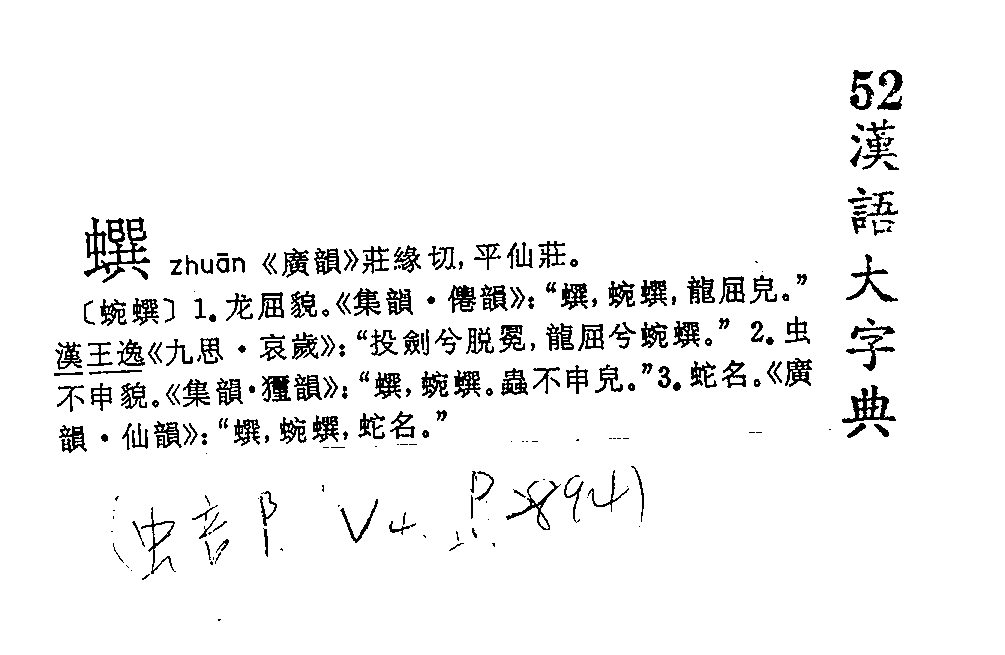 52漢語大字典
蟤 zhuān《廣韻》莊緣切，平仙莊。
〔蜿蟤〕1.龙屈貌。《集韻·僊韻》：“蟤，蜿蟤，龍屈皃。”
漢王逸《九思·哀歲》：“投劍兮脱冕，龍屈兮蜿蟤。” 2.虫
不申貌。《集韻·獮韻》：“蟤，蜿蟤。蟲不申皃。”3.蛇名。《廣
韻·仙韻》：“蟤，蜿蟤，蛇名。”
(虫部 V4. P.2894)